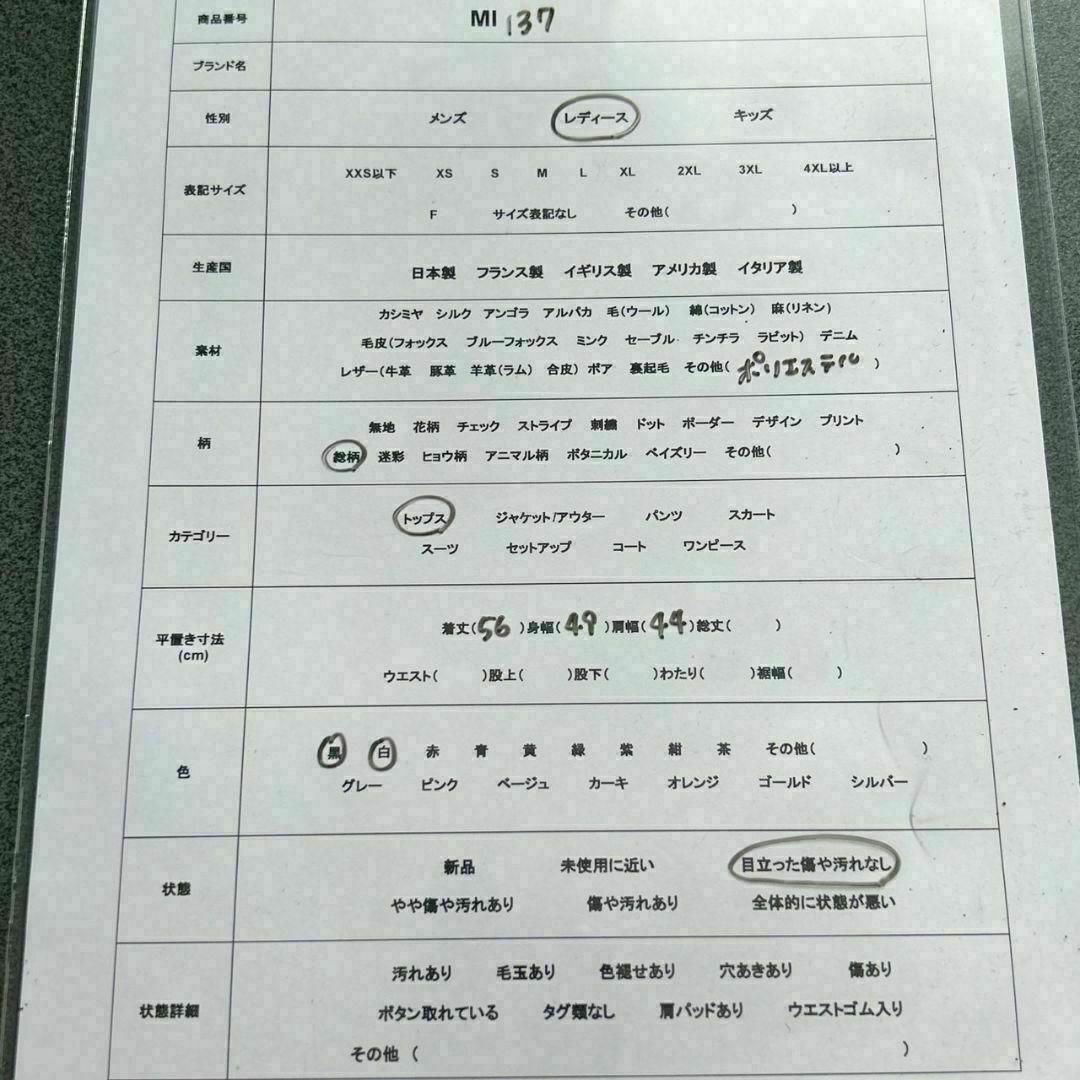 商品番号 MI 137
ブランド名
性別 メンズ レディース キッズ
表記サイズ XXS以下 XS S M L XL 2XL 3XL 4XL以上
F サイズ表記なし その他( )
生産国 日本製 フランス製 イギリス製 アメリカ製 イタリア製
素材 カシミヤ シルク アンゴラ アルパカ 毛(ウール) 綿(コットン) 麻(リネン)
毛皮(フォックス ブルーフォックス ミンク セーブル チンチラ ラビット) デニム
レザー(牛革 豚革 羊革(ラム) 合皮) ボア 裏起毛 その他( ポリエステル )
柄 無地 花柄 チェック ストライプ 刺繍 ドット ボーダー デザイン プリント
総柄 迷彩 ヒョウ柄 アニマル柄 ボタニカル ペイズリー その他( )
カテゴリー トップス ジャケット/アウター パンツ スカート
スーツ セットアップ コート ワンピース
平置き寸法 着丈( 56 )身幅( 49 )肩幅( 44 )総丈( )
(cm) ウエスト( )股上( )股下( )わたり( )裾幅( )
色 黒 白 赤 青 黄 緑 紫 紺 茶 その他( )
グレー ピンク ベージュ カーキ オレンジ ゴールド シルバー
状態 新品 未使用に近い 目立った傷や汚れなし
やや傷や汚れあり 傷や汚れあり 全体的に状態が悪い
状態詳細 汚れあり 毛玉あり 色褪せあり 穴あきあり 傷あり
ボタン取れている タグ類なし 肩パッドあり ウエストゴム入り
その他 ( )